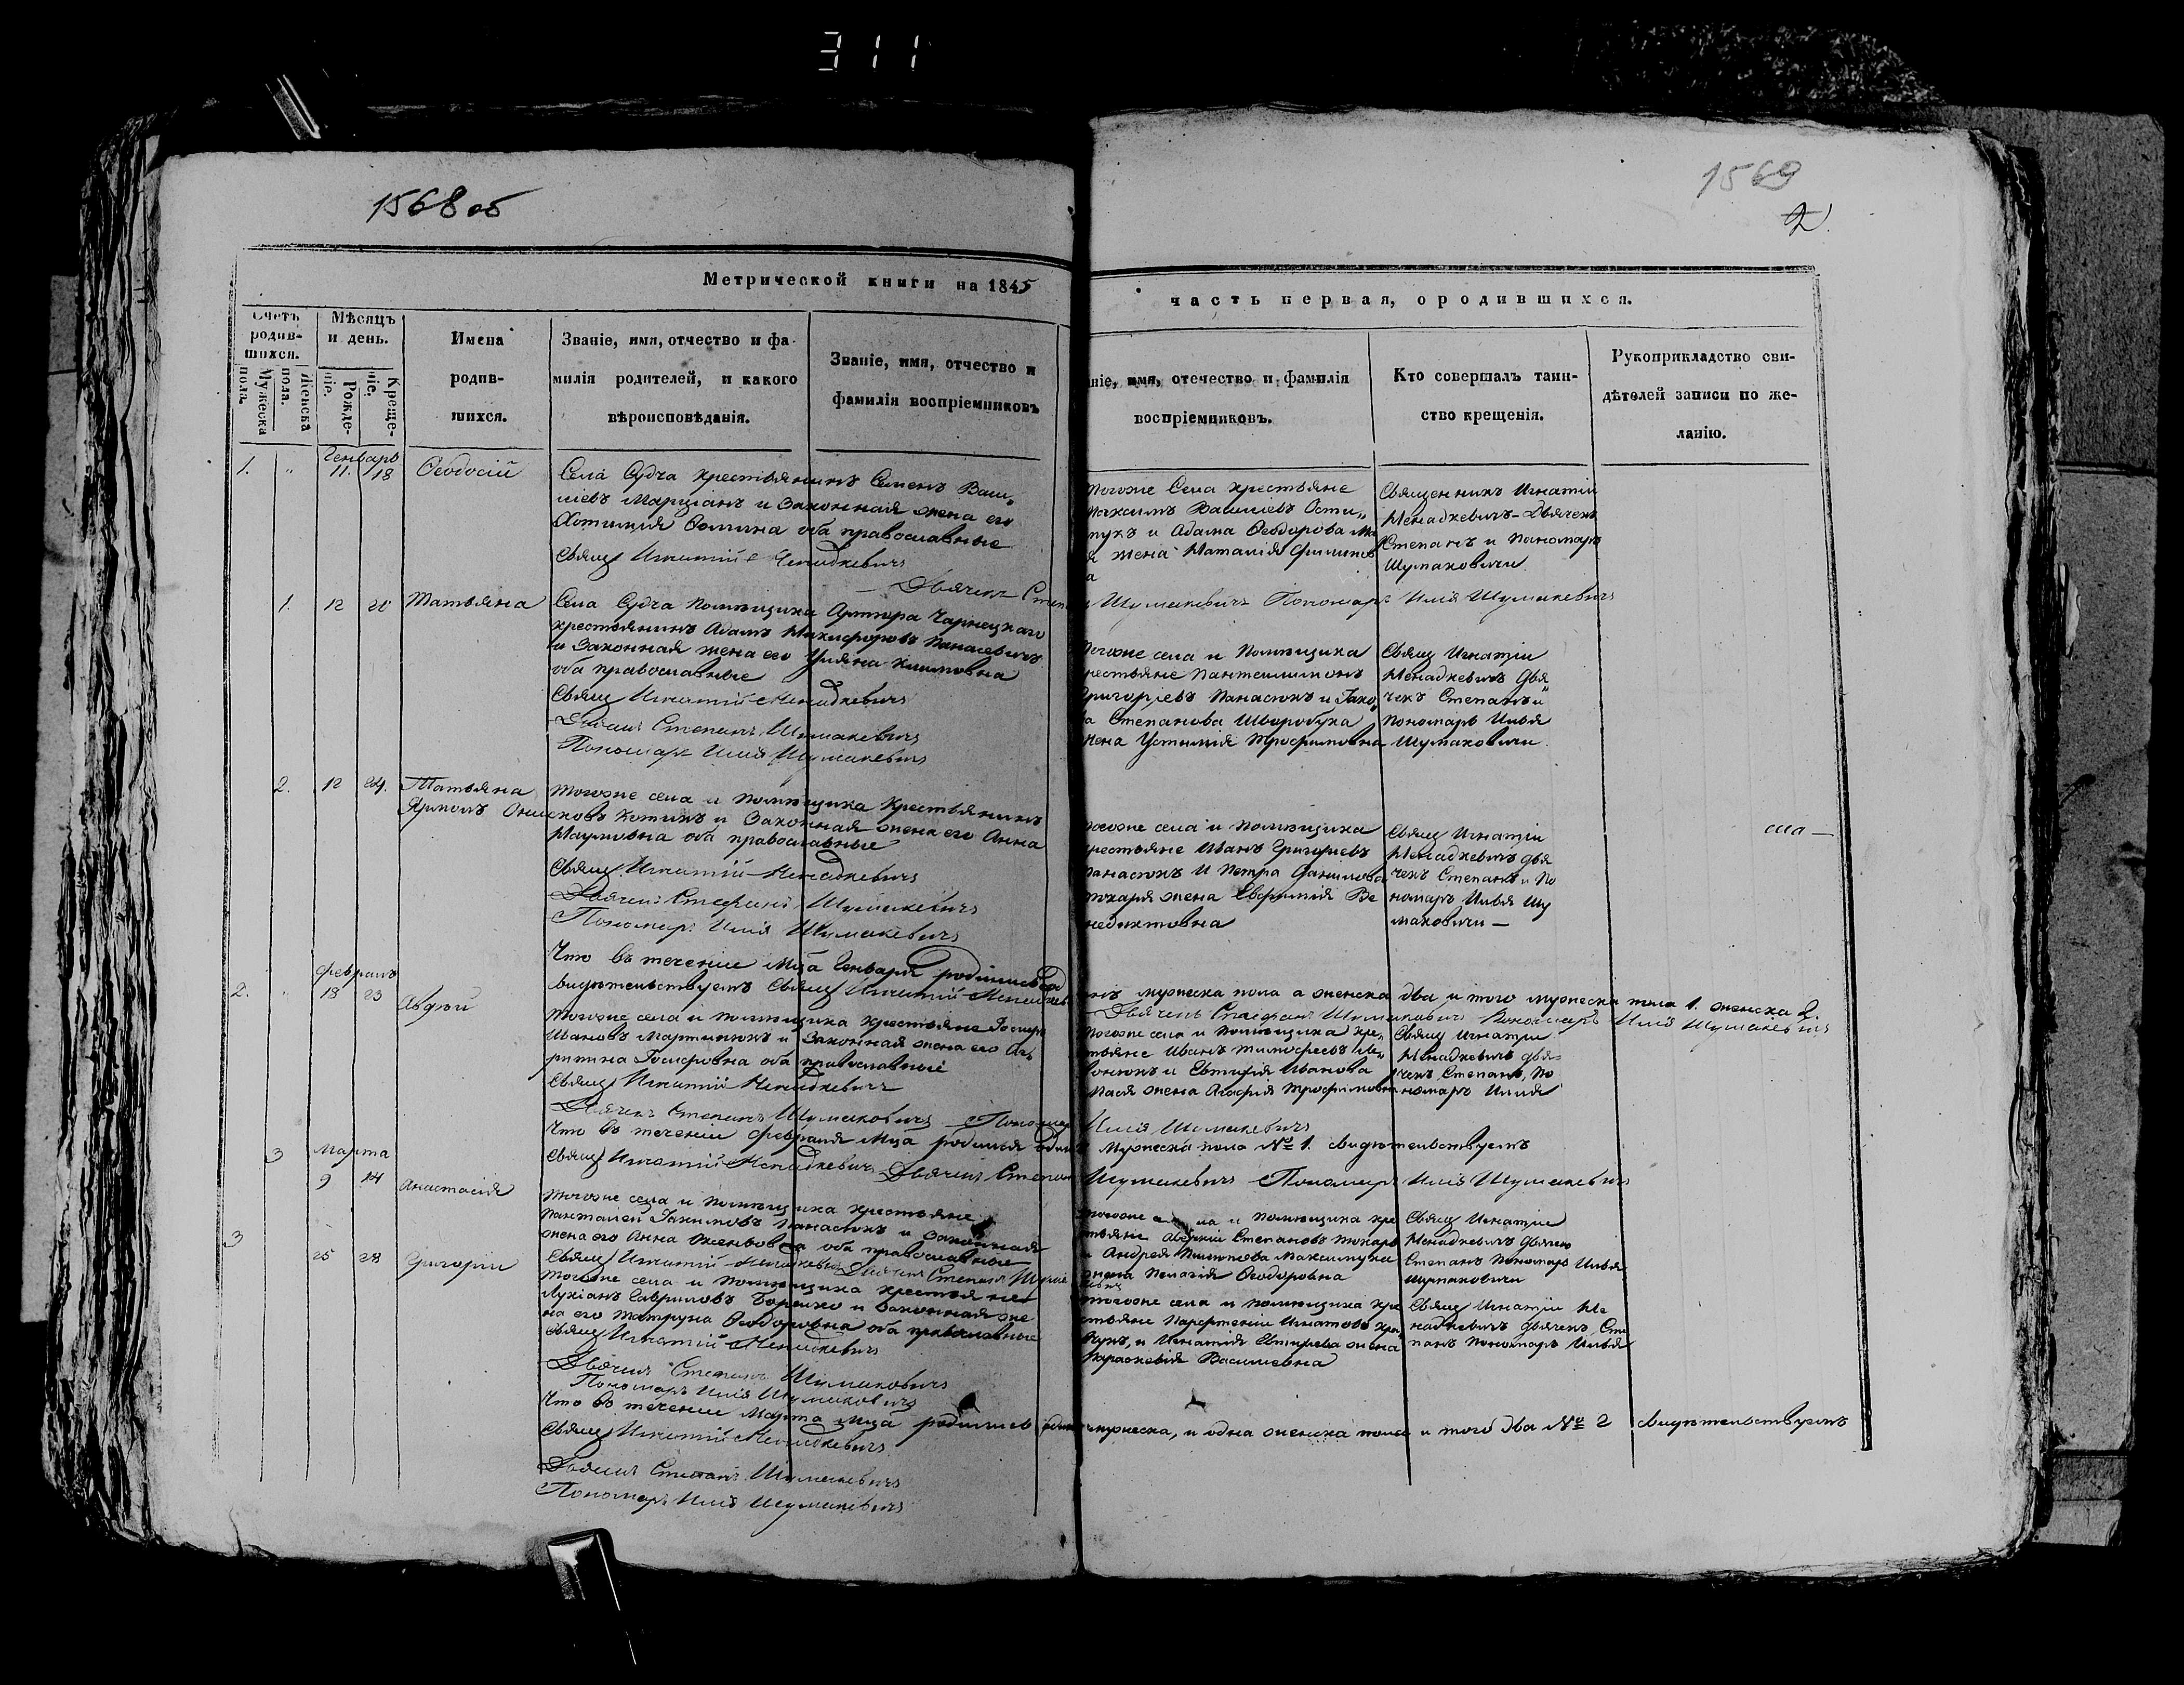 311
1568 об
1569
2
Метрической книги на 1845
часть первая, о родившихся.
Счетъ родив-шихся.
Мужеска пола.
Женска пола.
Мѣсяцъ и день.
Рожде-ніе.
Креще-ніе.
Имена родив-шихся.
Званіе, имя, отчество и фа-
милія родителей, и какого
вѣроисповѣданія.
Званіе, имя, отчество и
фамилія воспріемниковъ
ніе, имя, отечество и фамилія
воспріемниковъ.
Кто совершалъ таин-
ство крещенія.
Рукоприкладство сви-
дѣтелей записи по же-
ланію.
Генварь
1. " 11. 18 Ѳеодосій
Села Судча крестьянинъ Семенъ Васи„
лiевъ Марцианъ и Законная жена его
Хотимія Ѳомина оба православные
Свящ Игнатій Ненадкевичъ
Дьячекъ Степ
тогоже Села крестьяне
Максимъ Васильевъ Ости„
пукъ и Адама Ѳеодорова
жена Наталія Филипов
а
Священникъ Игнатій
Ненадкевичъ – Дьячекъ
Степанъ и пономарь
Шумаковичи
Шумакевичъ Пономарь Илія Шумакевичъ
1. 12 20 Татьяна
Села Судча помѣщика Артура Чарнецкаго
крестьянинъ Адамъ Никифоровъ Панасевичъ
и Законная жена его Ульяна Климовна
оба православные
Свящ Игнатій Ненадкевичъ
Дьячекъ Степанъ Шумакевичъ
Пономарь Илія Шумакевичъ
тогоже села и помѣщика
крестьяне Пантелимонъ
Григоріевъ Панасюкъ и Яко„
ва Степанова Шворобука
жена Устимія Трофимовна
Свящ Игнатіи
Ненадкевичъ дья„
чекъ Степанъ и
пономарь Илья
Шумаковичи.
2. 12 24. Татьяна
тогоже села и помѣщика Крестьянинъ
Ярмолъ Онисковъ Котикъ и Законная жена его Анна
Наумовна оба православные
Свящ Игнатій Ненадкевичъ
Дьячекъ Стефанъ Шумакевичъ
Пономарь Илія Шумакевичъ
тогоже села и помѣщика
крестьяне Иванъ Григорьевъ
Панасюкъ и Петра Данилова
токаря жена Евфимія Ве
недиктовна
Свящ Игнатіи
Ненадкевичъ дья
чекъ Степанъ и По
номарь Илья Шу
маковичи —
Что въ теченіе Мца Генваря родились
видѣтельствуетъ Свящ Игнатій Ненадкев
мужеска пола а женска два и того мужеска пола 1. женска 2.
Дьячекъ Стефанъ Шумакевичъ Пономарь Илія Шумакевичъ
февраль
2. " 18 23
тогоже села и помѣщика крестьяне Іосифъ
Ивановъ Мартинюкъ и Законная жена его
Іосифовна оба православные
Свящ Игнатій Ненадкевичъ
Дьячекъ Степанъ Шумаковичъ Пономарь
тогоже села и помѣщика кре„
стьяне Иванъ Тимофеевъ Ле„
вонюкъ и Евтихія Иванова
жена Агафія Трофимовна
Свящ Игнатіи
Ненадкевичъ дья=
чекъ Степанъ, По
номарь Илия
Илія Шумакевичъ
Что въ теченіи февраля Мца родился одинъ
Мужеска пола № 1. свидѣтельствуетъ
Свящ Игнатій Ненадкевичъ Дьячекъ Степан
Шумакевичъ Пономарь Илія Шумакевичъ
Марта
3 9 14 Анастасія
тогоже села и помѣщика крестьяне
Пантелей Якимовъ Панасюкъ и Законная
жена его Анна оба православные
Свящ Игнатій Ненадкевичъ Дьячекъ Степанъ Шумак
тогоже села и помѣщика кре
стьяне Аверкій Степановъ токарь
и Андрея Максимука
жена Пелагія Ѳеодоровна
Свящ Игнатіи
Ненадкевичъ дьячекъ
Степанъ пономарь Илья
Шумаковичи
3 25 28 Григорій
тогоже села и помѣщика крестьяне
Лукіанъ Гавриловъ и Законная же
на его Матруна Ѳеодоровна оба православные
Свящ Игнатій Ненадкевичъ
Дьячекъ Степанъ Шумаковичъ
Пономарь Илія Шумаковичъ
тогоже села и помѣщика кре
стьяне Парфентій Игнатовъ
и Игнатія жена
Параскевія Василіевна
Свящ Игнатіи Не
надкевичъ дьячекъ Сте
панъ пономарь Илья
Что въ теченіи Марта мца родились одинъ
мужеска, и одна женска пола и того два № 2 свидѣтельствуетъ
Свящ Игнатій Ненадкевичъ
Дьячекъ Степанъ Шумакевичъ
Пономарь Илія Шумакевичъ